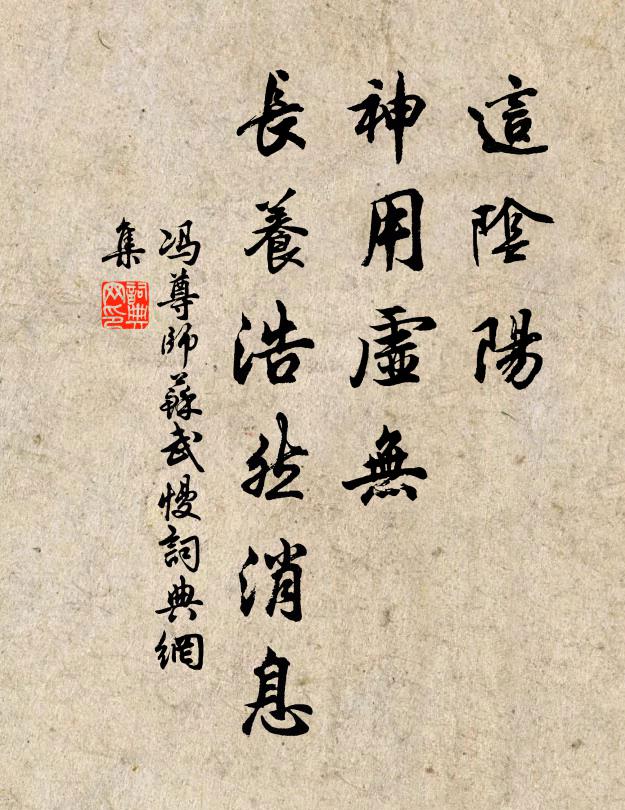 這陰陽
神用虛無
長養浩然消息
冯尊師蘇武慢詞典網
集
詞典
网印